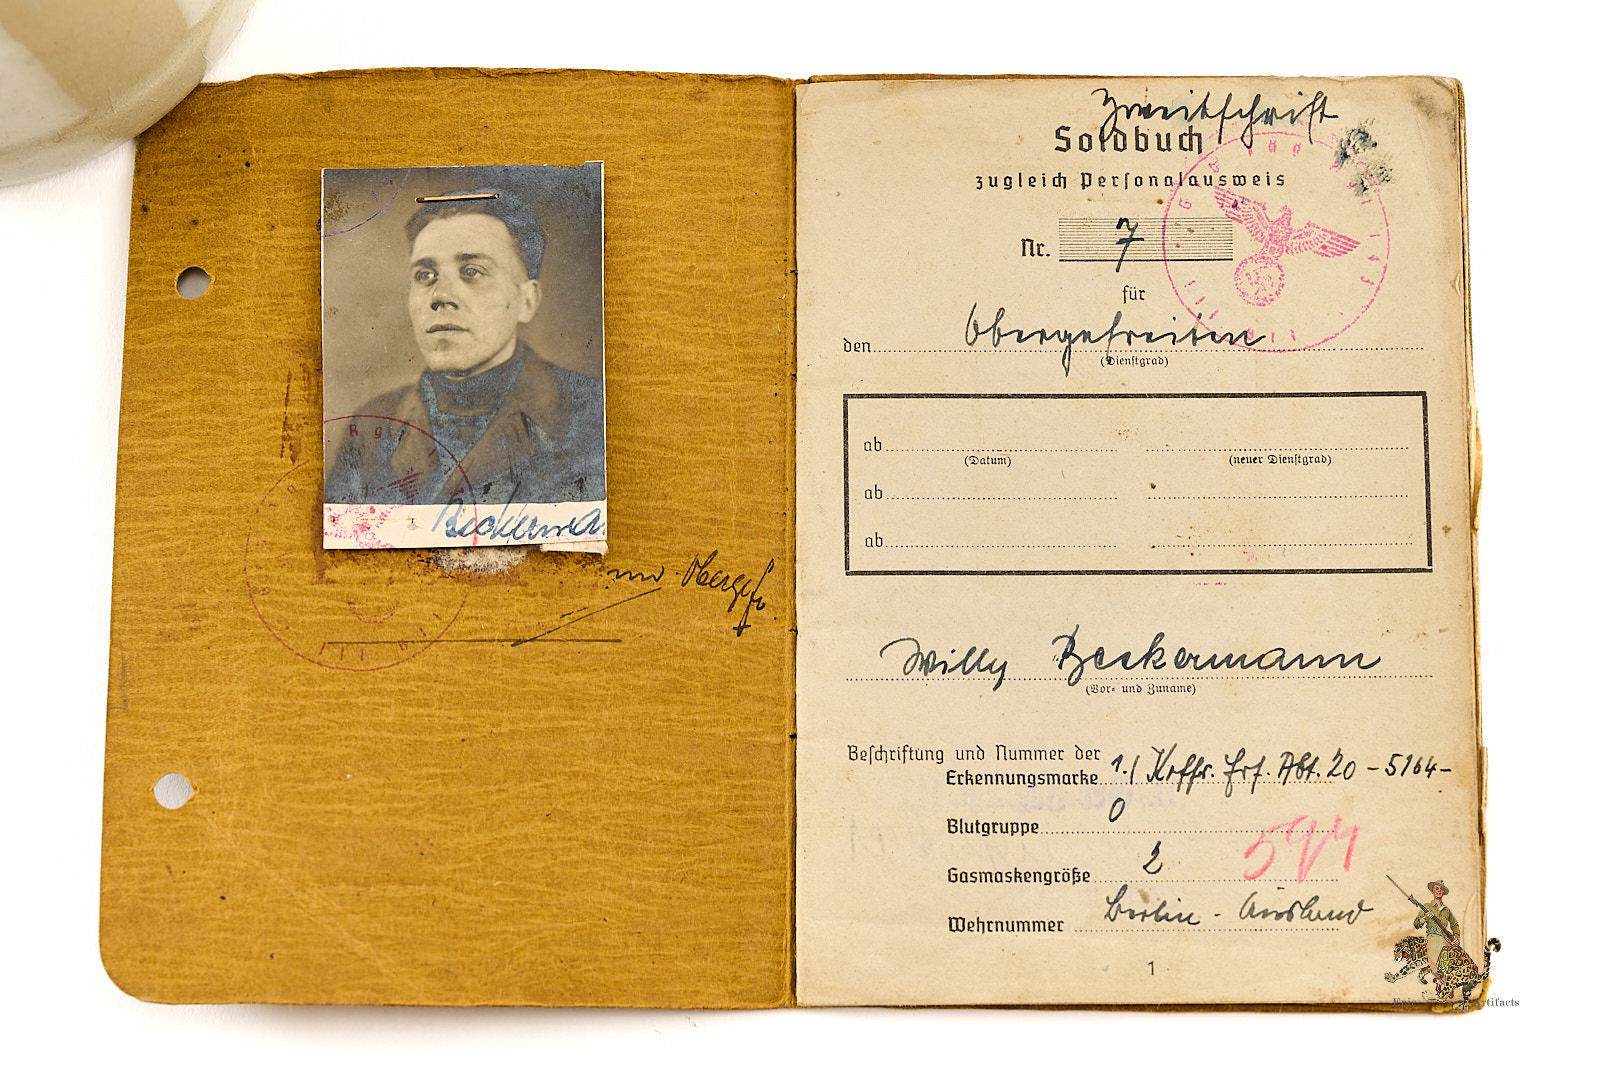 Beckerman
und Obergefr.
Zweitschrift
Soldbuch
zugleich Personalausweis
Nr. 7
für
den Obergefreiten
(Dienstgrad)
ab
(Datum) (neuer Dienstgrad)
ab
ab
Willy Beckermann
(Vor- und Zuname)
Beschriftung und Nummer der
Erkennungsmarke 1./ Krffr. Ers. Abt. 20 - 5164 -
Blutgruppe 0
Gasmaskengröße 2
Wehrnummer Berlin - Ausland
1
Artifacts